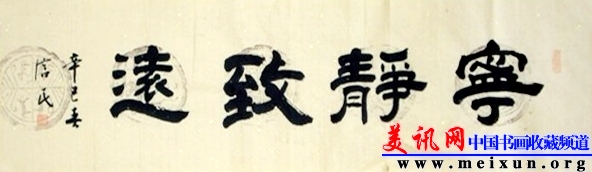 寧靜致遠
辛巳春
信民
美讯网 中国书画收藏频道
www.meixun.org